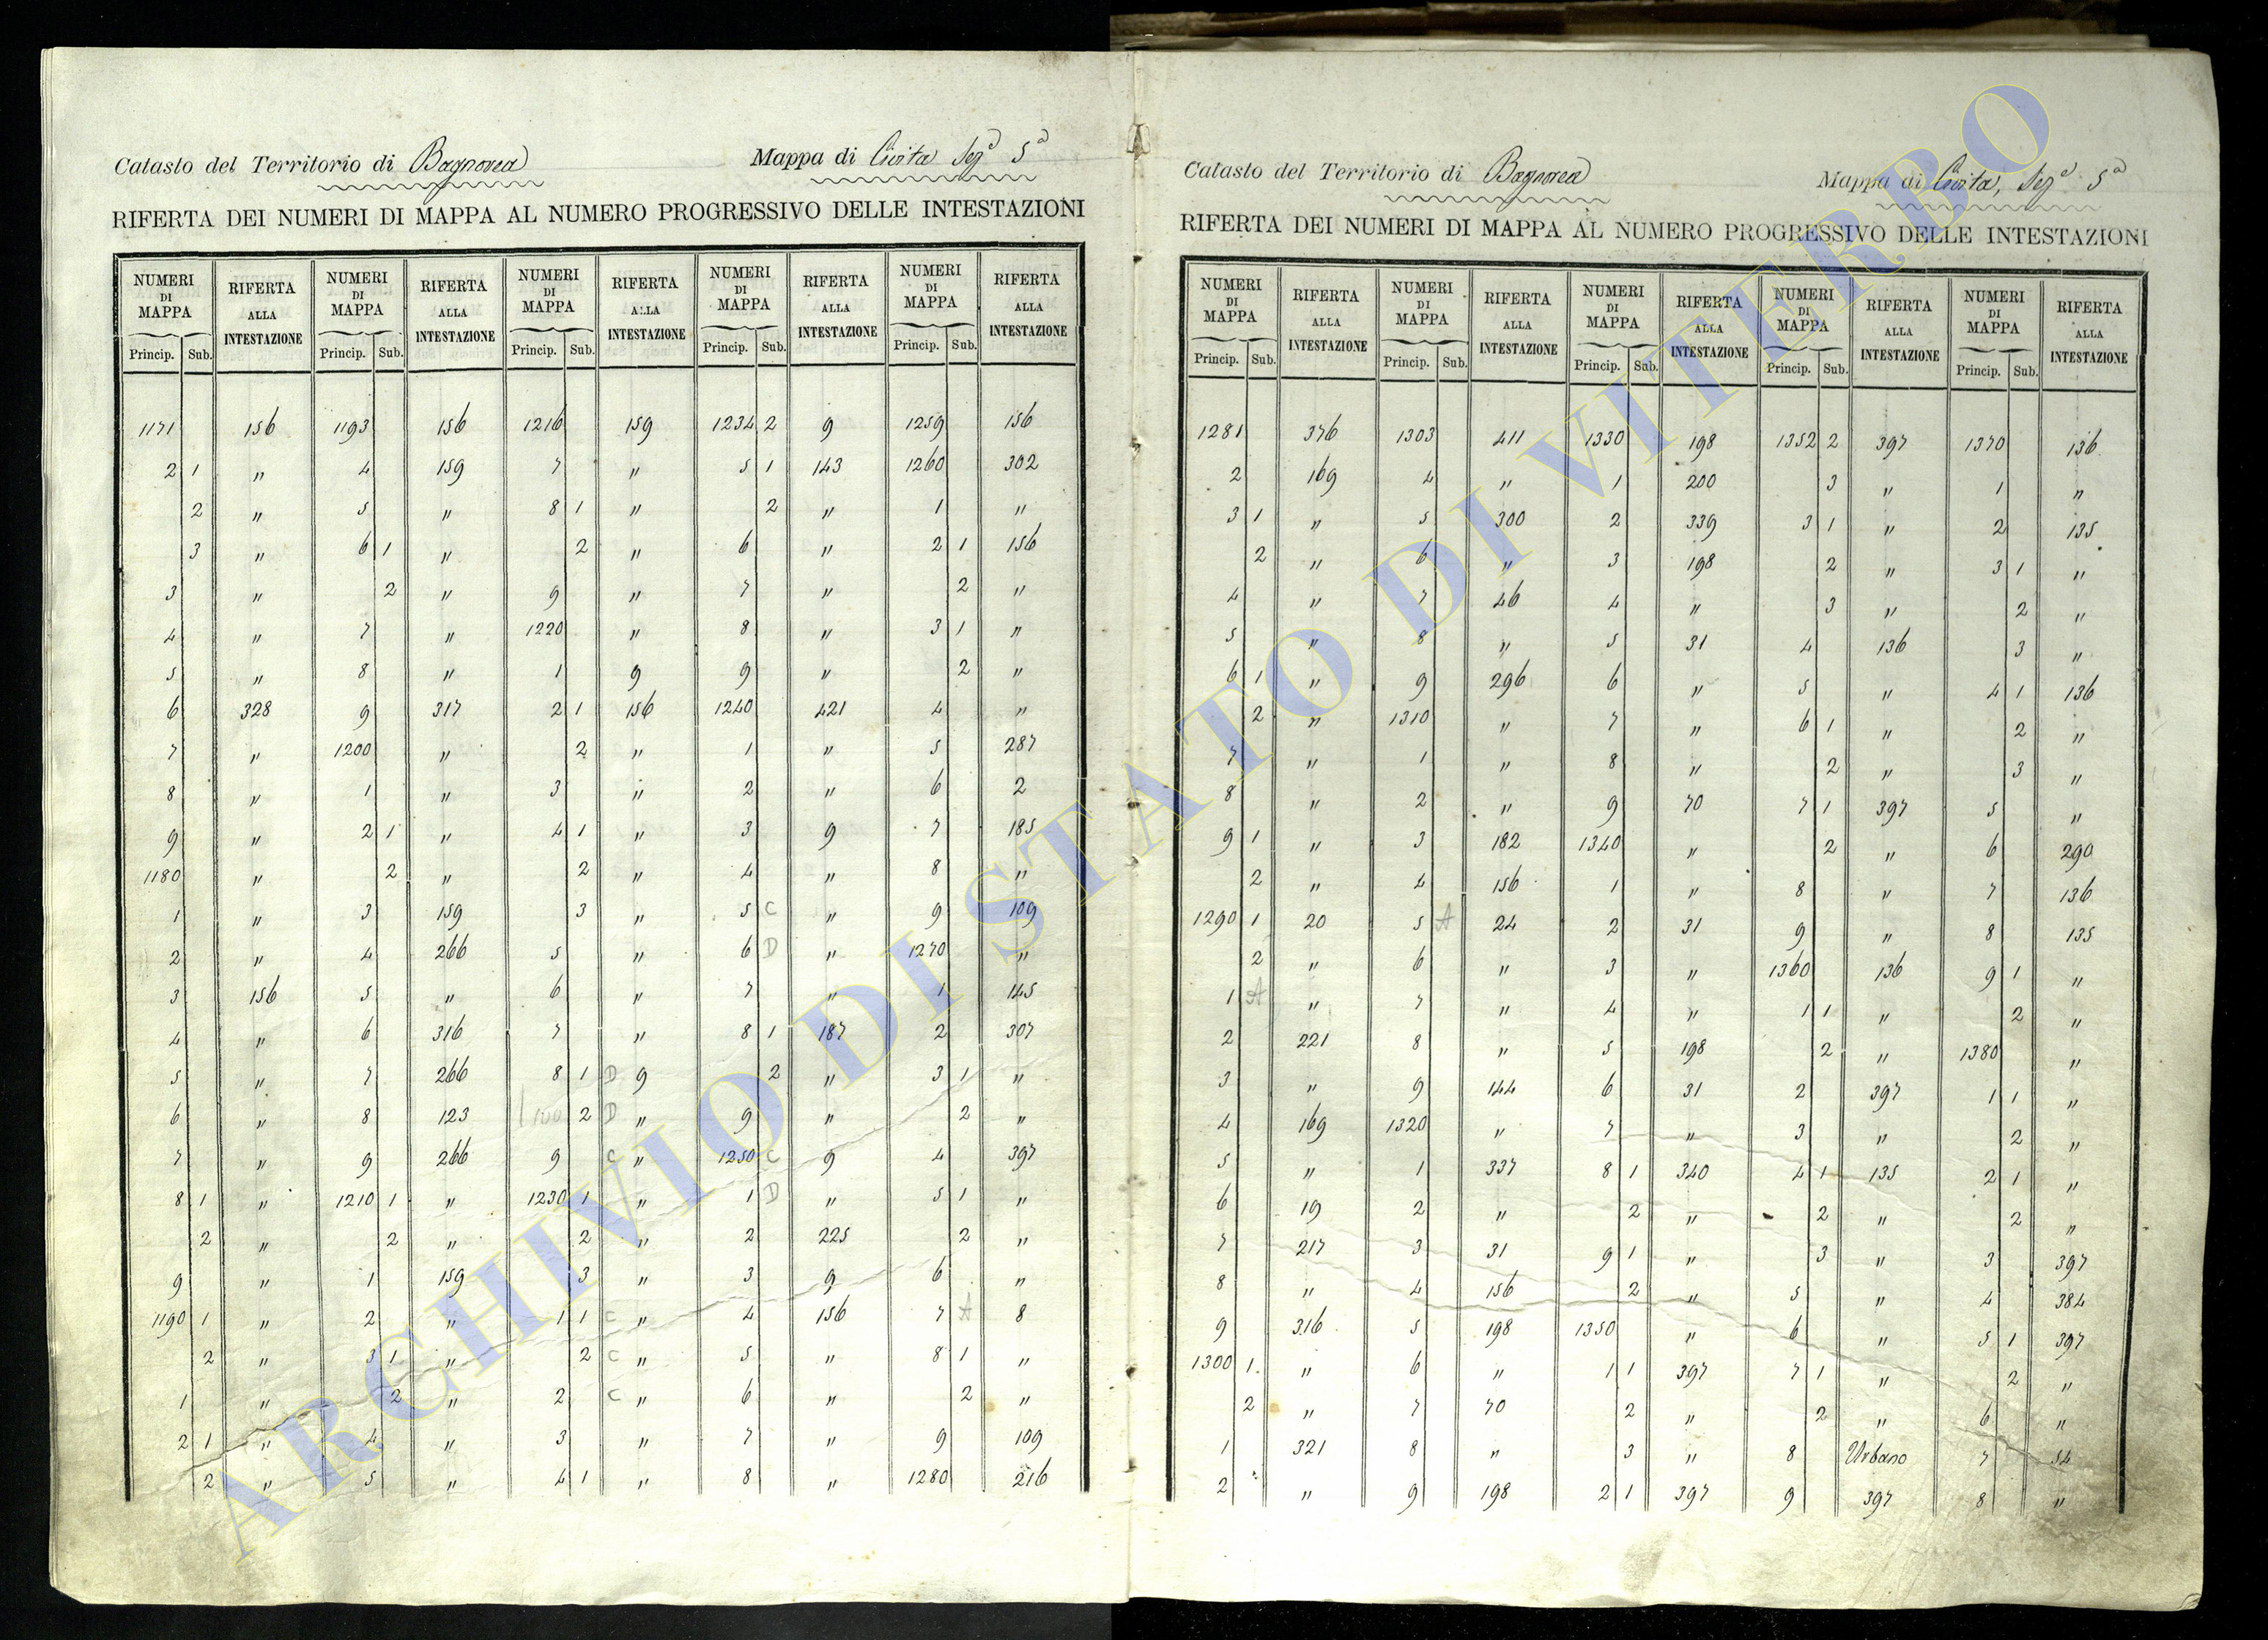 Catasto del Territorio di Bagnorea Mappa di Civita Sez.a 5a
RIFERTA DEI NUMERI DI MAPPA AL NUMERO PROGRESSIVO DELLE INTESTAZIONI
NUMERI DI MAPPA RIFERTA ALLA INTESTAZIONE NUMERI DI MAPPA RIFERTA ALLA INTESTAZIONE NUMERI DI MAPPA RIFERTA ALLA INTESTAZIONE NUMERI DI MAPPA RIFERTA ALLA INTESTAZIONE NUMERI DI MAPPA RIFERTA ALLA INTESTAZIONE
Princip. Sub. Princip. Sub. Princip. Sub. Princip. Sub. Princip. Sub.
1171 156 1193 156 1216 159 1234 2 9 1259 156
2 1 " 4 159 7 " 5 1 143 1260 302
2 " 5 " 8 1 " 2 " 1 "
3 " 6 1 " 2 " 6 " 2 1 156
3 " 2 " 9 " 7 " 2 "
4 " 7 " 1220 " 8 " 3 1 "
5 " 8 " 1 9 9 " 2 "
6 328 9 317 2 1 156 1240 421 4 "
7 " 1200 " 2 " 1 " 5 287
8 " 1 " 3 " 2 " 6 2
9 " 2 1 " 4 1 " 3 9 7 185
1180 " 2 " 2 " 4 " 8 "
1 " 3 159 3 " 5 C " 9 109
2 " 4 266 5 " 6 D " 1270 "
3 156 5 " 6 " 7 " 1 145
4 " 6 316 7 " 8 1 187 2 307
5 " 7 266 8 1 D 9 2 " 3 1 "
6 " 8 123 2 D " 9 " 2 "
7 " 9 266 9 C " 1250 C 9 4 397
8 1 " 1210 1 " 1230 1 " 1 D " 5 1 "
2 " 2 " 2 " 2 225 2 "
9 " 1 159 3 " 3 9 6 "
1190 1 " 2 " 1 1 C " 4 156 7 A 8
2 " 3 1 " 2 C " 5 " 8 1 "
1 " 2 " 2 C " 6 " 2 "
2 1 " 4 " 3 " 7 " 9 109
2 " 5 " 4 1 " 8 " 1280 216
Catasto del Territorio di Bagnorea Mappa di Civita, Sez.a 5a
RIFERTA DEI NUMERI DI MAPPA AL NUMERO PROGRESSIVO DELLE INTESTAZIONI
NUMERI DI MAPPA RIFERTA ALLA INTESTAZIONE NUMERI DI MAPPA RIFERTA ALLA INTESTAZIONE NUMERI DI MAPPA RIFERTA ALLA INTESTAZIONE NUMERI DI MAPPA RIFERTA ALLA INTESTAZIONE NUMERI DI MAPPA RIFERTA ALLA INTESTAZIONE
Princip. Sub. Princip. Sub. Princip. Sub. Princip. Sub. Princip. Sub.
1281 376 1303 411 1330 198 1352 2 397 1370 136
2 169 4 " 1 200 3 " 1 "
3 1 " 5 300 2 339 3 1 " 2 135
2 " 6 " 3 198 2 " 3 1 "
4 " 7 46 4 " 3 " 2 "
5 " 8 " 5 31 4 136 3 "
6 1 " 9 296 6 " 5 " 4 1 136
2 " 1310 " 7 " 6 1 " 2 "
7 " 1 " 8 " 2 " 3 "
8 " 2 " 9 70 7 1 397 5 "
9 1 " 3 182 1340 " 2 " 6 290
2 " 4 156 1 " 8 " 7 136
1290 1 20 5 A 24 2 31 9 " 8 135
2 " 6 " 3 " 1360 136 9 1 "
1 A " 7 " 4 " 1 1 " 2 "
2 221 8 " 5 198 2 " 1380 "
3 " 9 144 6 31 2 397 1 1 "
4 169 1320 " 7 " 3 " 2 "
5 " 1 337 8 1 340 4 1 135 2 1 "
6 19 2 " 2 " 2 " 2 "
7 217 3 31 9 1 " 3 " 3 397
8 " 4 156 2 " 5 " 4 384
9 316 5 198 1350 " 6 " 5 1 397
1300 1 " 6 " 1 1 397 7 1 " 2 "
2 " 7 70 2 " 2 " 6 "
1 321 8 " 3 " 8 Urbano 7 54
2 " 9 198 2 1 397 9 397 8 "
ARCHIVIO DI STATO DI VITERBO